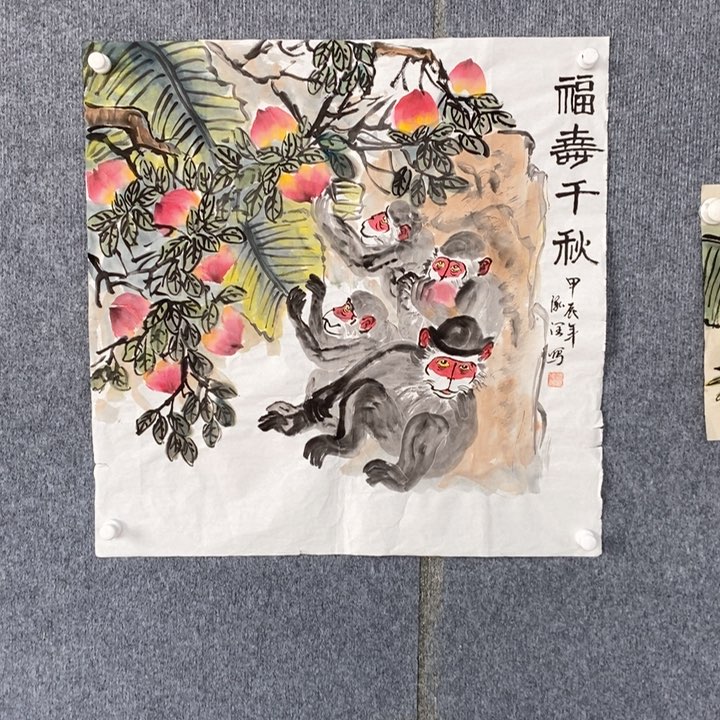 福壽千秋
甲辰年
写